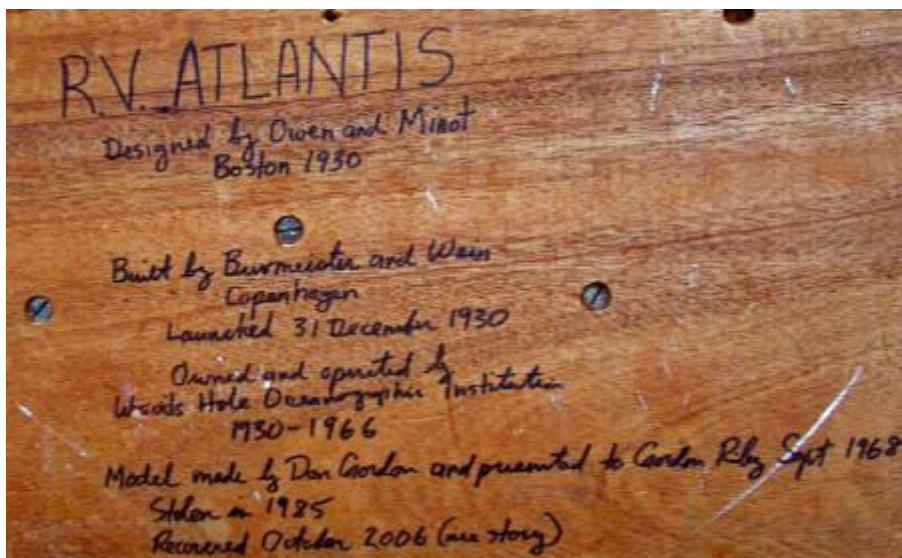 R.V. ATLANTIS
Designed by Owen and Minot
Boston 1930
Built by Burmeister and Wain
Copenhagen
Launched 31 December 1930
Owned and operated by
Woods Hole Oceanographic Institution
1930-1966
Model made by Don Gordon and presented to Gordon Riley Sept 1968
Stolen in 1985
Recovered October 2006 (see story)